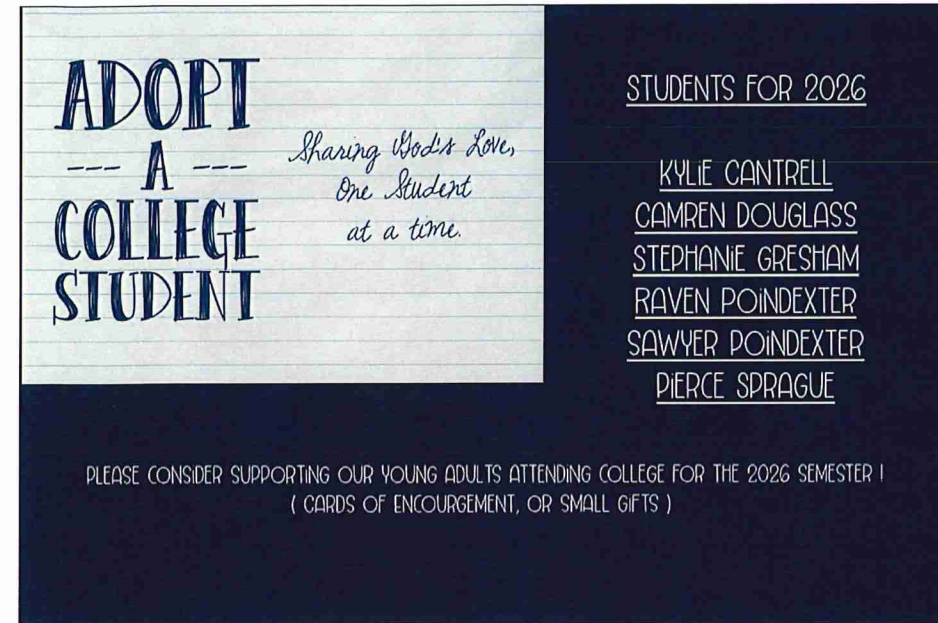 ADOPT
--- A ---
COLLEGE
STUDENT
Sharing God's Love,
One Student
at a time.
STUDENTS FOR 2026
KYLIE CANTRELL
CAMREN DOUGLASS
STEPHANIE GRESHAM
RAVEN POINDEXTER
SAWYER POINDEXTER
PIERCE SPRAGUE
PLEASE CONSIDER SUPPORTING OUR YOUNG ADULTS ATTENDING COLLEGE FOR THE 2026 SEMESTER !
( CARDS OF ENCOURGEMENT, OR SMALL GIFTS )